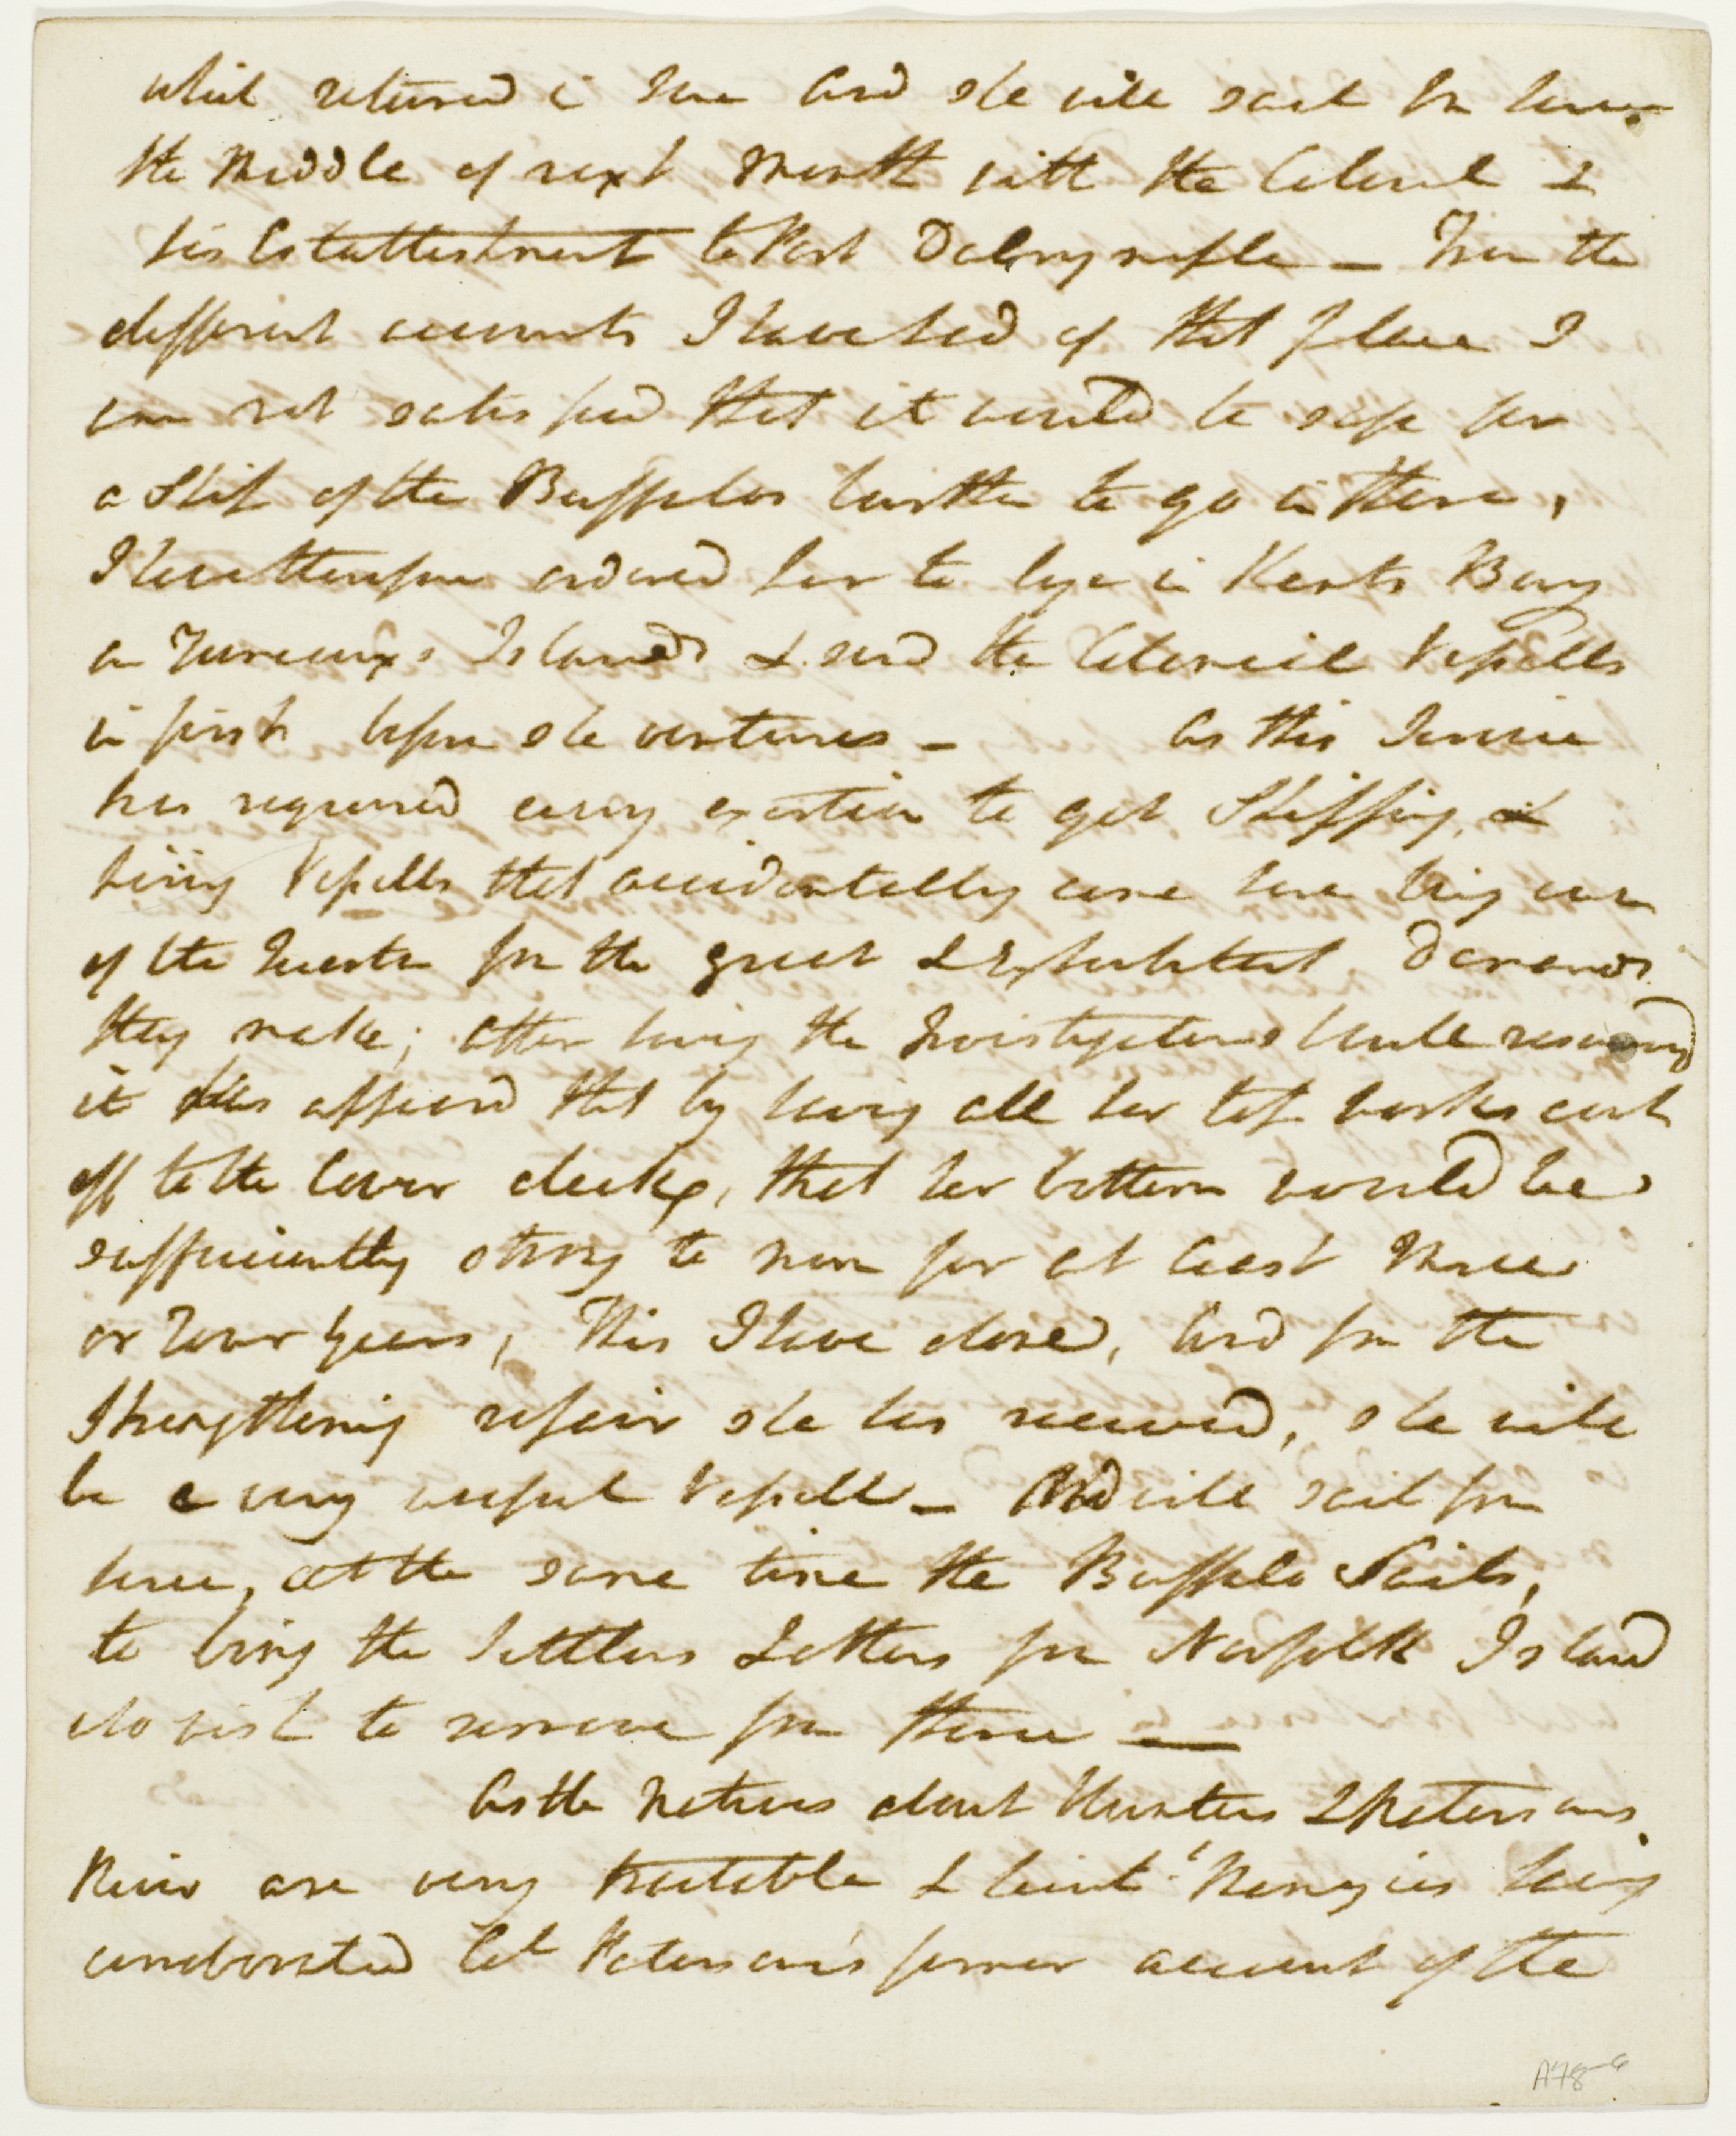 which returned in June and she will sail from hence
the Middle of next Month with the Colonel &
his Establishment to Port Dalrymple — From the
different accounts I have had of that place I
am not satisfied that it would be safe for
a Ship of the Buffalos burthen to go in there,
I have therefore ordered her to lye in Kents Bay
on Furneaux's Islands & send the Colonial Vessells
in first before she ventures — As this Service
has required every exertion to get Shipping, &
hiring Vessells that accidentally come here being out
of the question from the great & exhorbitant Demands
they make; after having the Investigators hull surveyed
it has appeared that by having all her top works cut
off to the lower deck, that her bottom would be
sufficiently strong to run for at least Three
or Four Years, This I have done, and from the
Strengthening repair she has received, she will
be a very useful Vessell — And will sail from
hence, at the same time the Buffalo Sails,
to bring the Settlers & others from Norfolk Island
who wish to remove from thence —
As the Natives about Hunters & Patersons
River are very tractable & Lieut Menzies having
corroborated Col Paterson's former account of the
A78-6